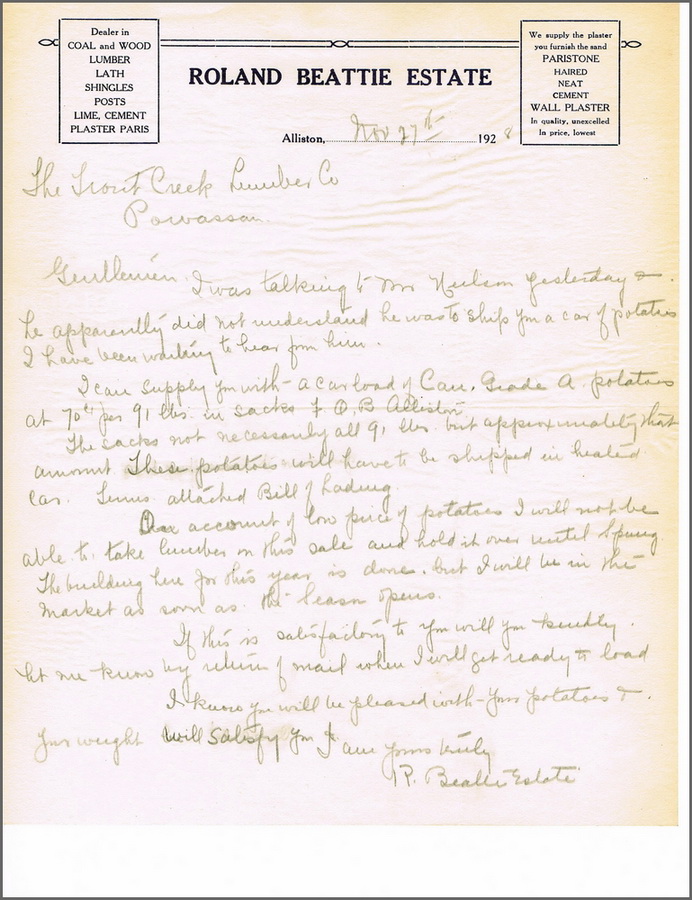 Dealer in
COAL and WOOD
LUMBER
LATH
SHINGLES
POSTS
LIME, CEMENT
PLASTER PARIS
ROLAND BEATTIE ESTATE
We supply the plaster
you furnish the sand
PARISTONE
HAIRED
NEAT
CEMENT
WALL PLASTER
In quality, unexcelled
In price, lowest
Alliston, Nov 27th 1928
The Trout Creek Lumber Co
Powassan
Gentlemen I was talking to Mr Neilson yesterday &
he apparently did not understand he was to ship you a car of potatoes
I have been waiting to hear from him.
I can supply you with a carload of Can. Grade A potatoes
at 70¢ per 91 lbs. in sacks F.O.B Alliston
The sacks not necessarily all 91 lbs but approximately that
amount. These potatoes will have to be shipped in heated
car. Terms attached Bill of Lading.
On account of low price of potatoes I will not be
able to take lumber on this sale and hold it over until Spring
The building here for this year is done. but I will be in the
market as soon as the season opens.
If this is satisfactory to you will you kindly
let me know by return of mail when I will get ready to load
I know you will be pleased with your potatoes &
your weight will satisfy you I am yours truly
R. Beattie Estate